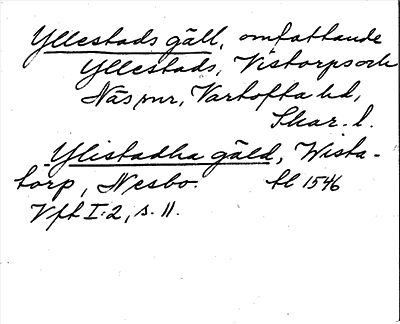 Yllestads gäll, omfattande
Yllestads, Vistorps och
Näs snr, Vartofta hd,
Skar. l.
Ylistadha gäld, Wista-
torp, Nesbo. tl 1546
Vft I:2, s. 11.